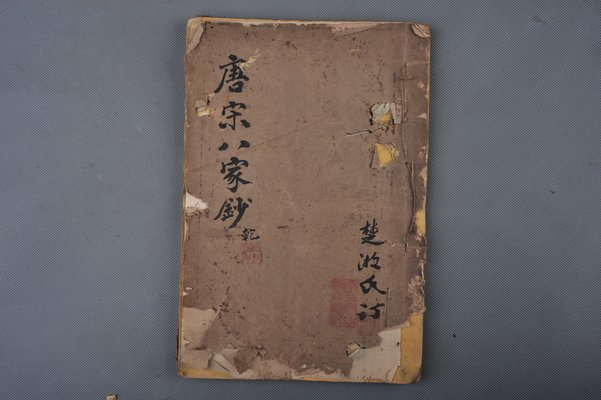 唐宋八家鈔
乾
楚波氏訂